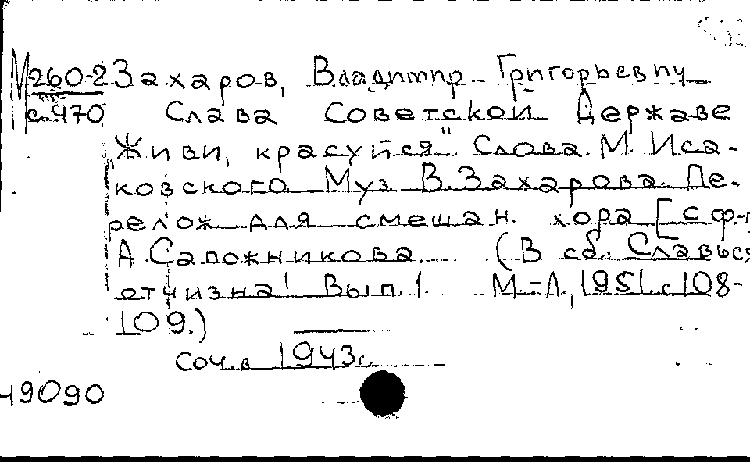 М260-2 Захаров, Владимир Григорьевич
с.470 Слава Советской Державе
"Живи, красуйся" Слова М. Иса-
ковского Муз В. Захарова. Пе-
релож для смешан. хора [с ф-п
А. Сапожникова. (В сб. Славься
отчизна! Вып. 1 М.-Л., 1951 с 108-
109.)
Соч. в 1943 г.
49090